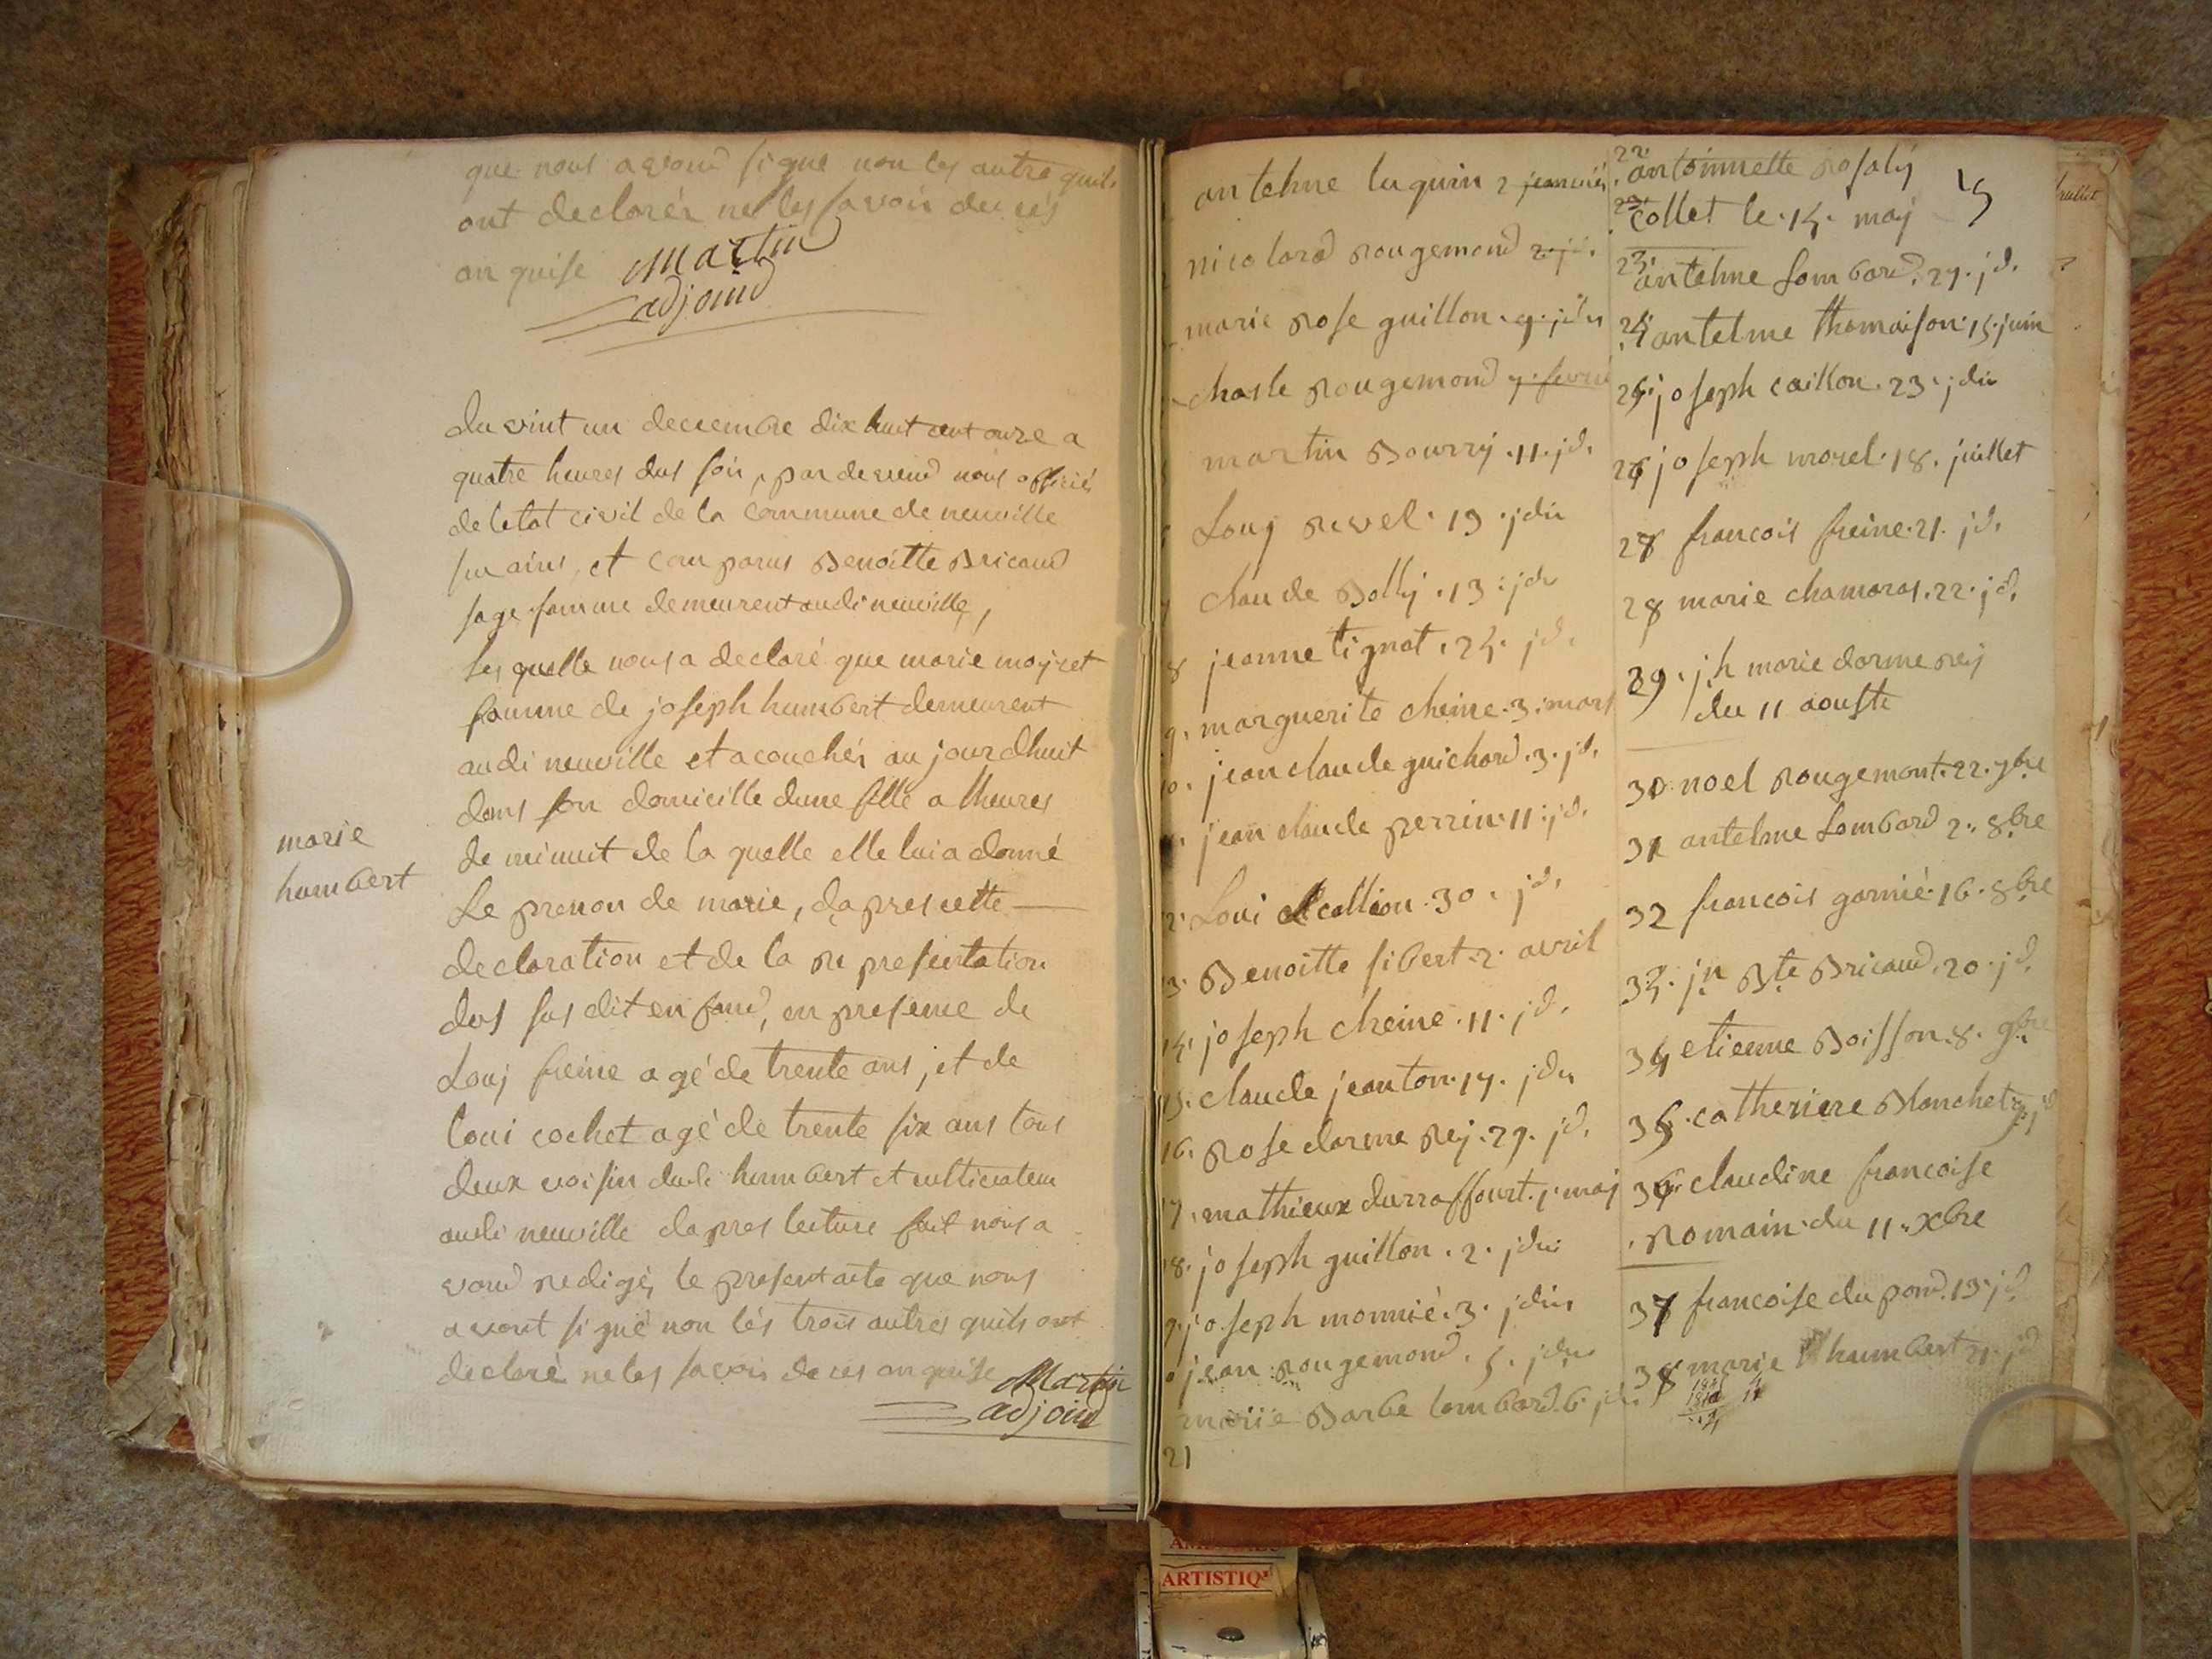 que nous avond signe non les autre quil
ont declarér ne les savoir de ces
an quise Martin
adjoind
du vint un decembre dix huit cent onze a
quatre heures dus soir, par devend nous officiér
de letat civil de la commune de neuville
sur ains, et comparus Benoitte Bricaud
sage famme demeurent audi neuville,
les quelle nous a declaré que marie moyret
famme de joseph humbert demeurent
audi neuville et acouchér au jourdhuit
dans son domicille dune fille a lheures
de minuit de la quelle elle lui a donné
Le prenon de marie, dapres cette
declaration et de la re presentation
dus sus dit en fand, en presence de
Louj freine agé de trente ans, et de
loui cochet agé de trente six ans tous
deux voisin dudi humbert et cultivateur
audi neuville dapres lecture fait nous a
vond redigér le present acte que nous
avont signé non lés trois autres quils ont
declaré ne les savoir de ces an quise Martin
adjoind
marie
humbert
antelme luquin 2 janvier
nicolard rougemond 2 jd.
marie rose guillon. 9. jdu
charle rougemond 7. fevrié
martin Bourrj. 11. jd.
Louj revel. 13. jdu
claude Bollj. 13. jdu
8 jeanne tignat. 24. jd.
9. marguerite cheine. 3. mars
10. jean claude guichard. 3. jd.
jean claude perrin. 11. jd.
2. Loui callion. 30. jd.
3. Benoitte sibert. 2. avril
14. joseph cheine. 11. jd.
15. claude jeanton. 17. jdu
16. rose darme rej. 27. jd.
17. mathieux durraffourt. j. maj
18. joseph guillon. 2. jdu
9. joseph monnié. 3. jdu
0 jean rougemond. 5. jdu
marie Barbe lombard. 6. jd.
21
22. antoinnette rosalÿ
collet le. 14. maj
15
23. antelme Lombard. 27. jd.
24 antelme thomaison. 15. juin
25. joseph caillon. 23. jdu
26 joseph morel. 18. juillet
27 francois freine. 21. jd.
28 marie chamaras. 22. jd.
29. jh marie darme rej
du 11 aouste
30 noel rougemont. 22. 7bre
31 antelme Lombard 2. 8bre
32 francois garnié. 16. 8bre
33. jn Bte Bricaud. 20. jd.
34 etienne Boisson. 8. 9bre
35. catherine Blanchet jd
36 claudine francoise
romain. du 11. Xbre
37 francoise du pond. 13. jd
38 marie humbert 21. jd
juillet
ARTISTIQ